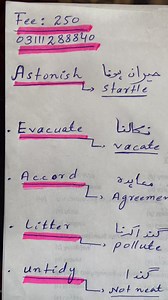 Fee: 250
03111288840
Astonish حیران ہونا
startle
• Evacuate نکالنا
vacate
• Accord معاہدہ
Agreemen
• Litter گندا کرنا
pollute
• untidy گندا
Not neat